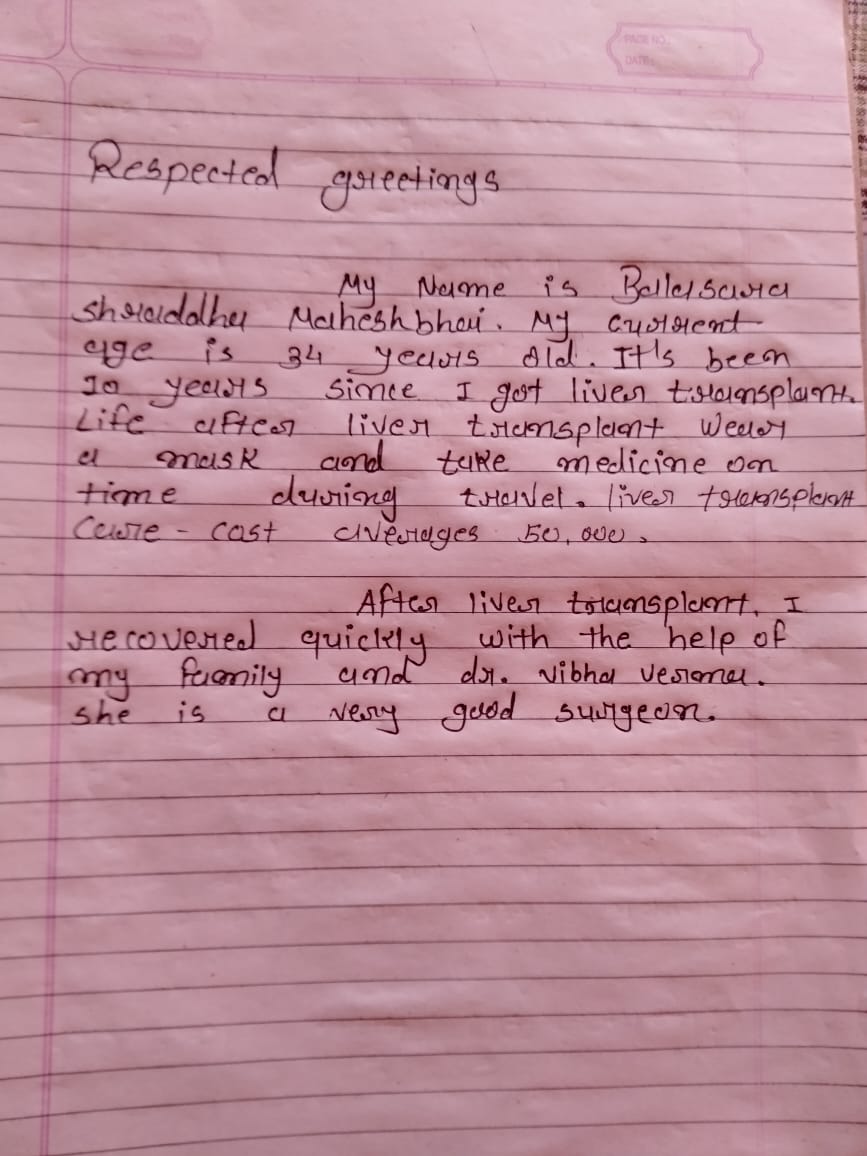 PAGE NO.:
DATE:
Respected greetings
My Name is Balarsara
Shraddha Maheshbhai. My current
age is 34 years old. It's been
10 years since I got liver transplant.
Life after liver transplant wear
a mask and take medicine on
time during travel. liver transplant
Care - cost averages 50,000.
After liver transplant. I
recovered quickly with the help of
my family and dr. vibha verma.
she is a very good surgeon.